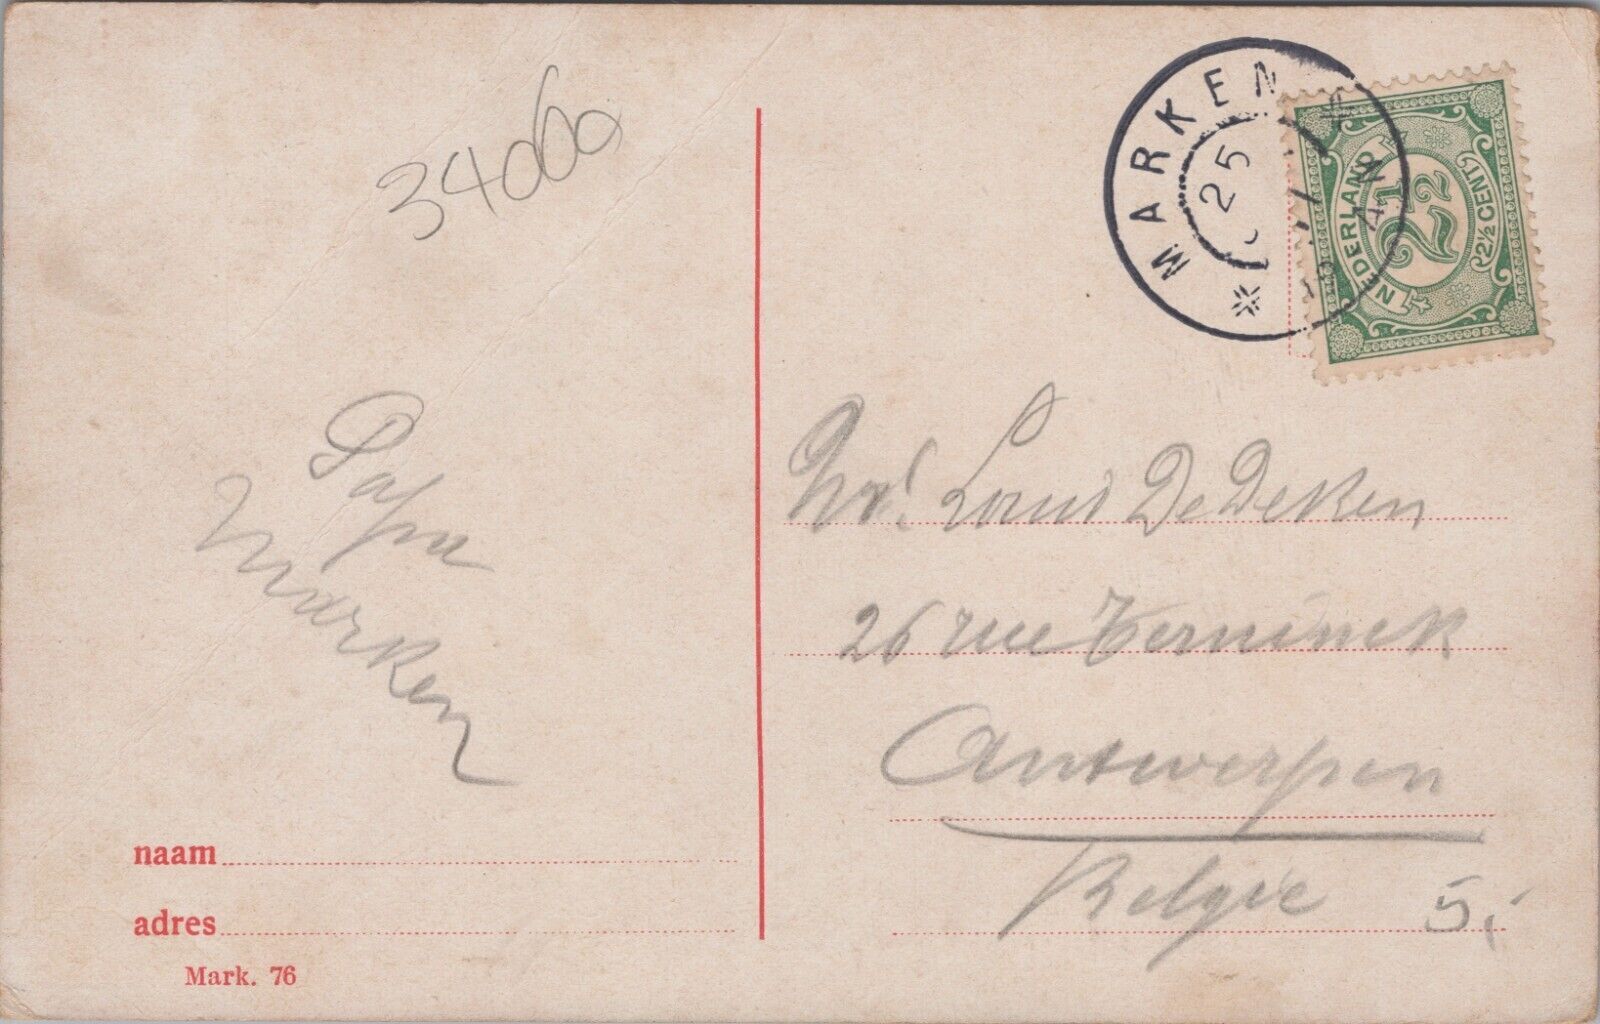 34060
MARKEN
25
NEDERLAND
2½
2½ CENT
Papa
Marken
Mr. Louis De Deken
26 rue Terninck
Antwerpen
Belgie
5,-
naam
adres
Mark. 76